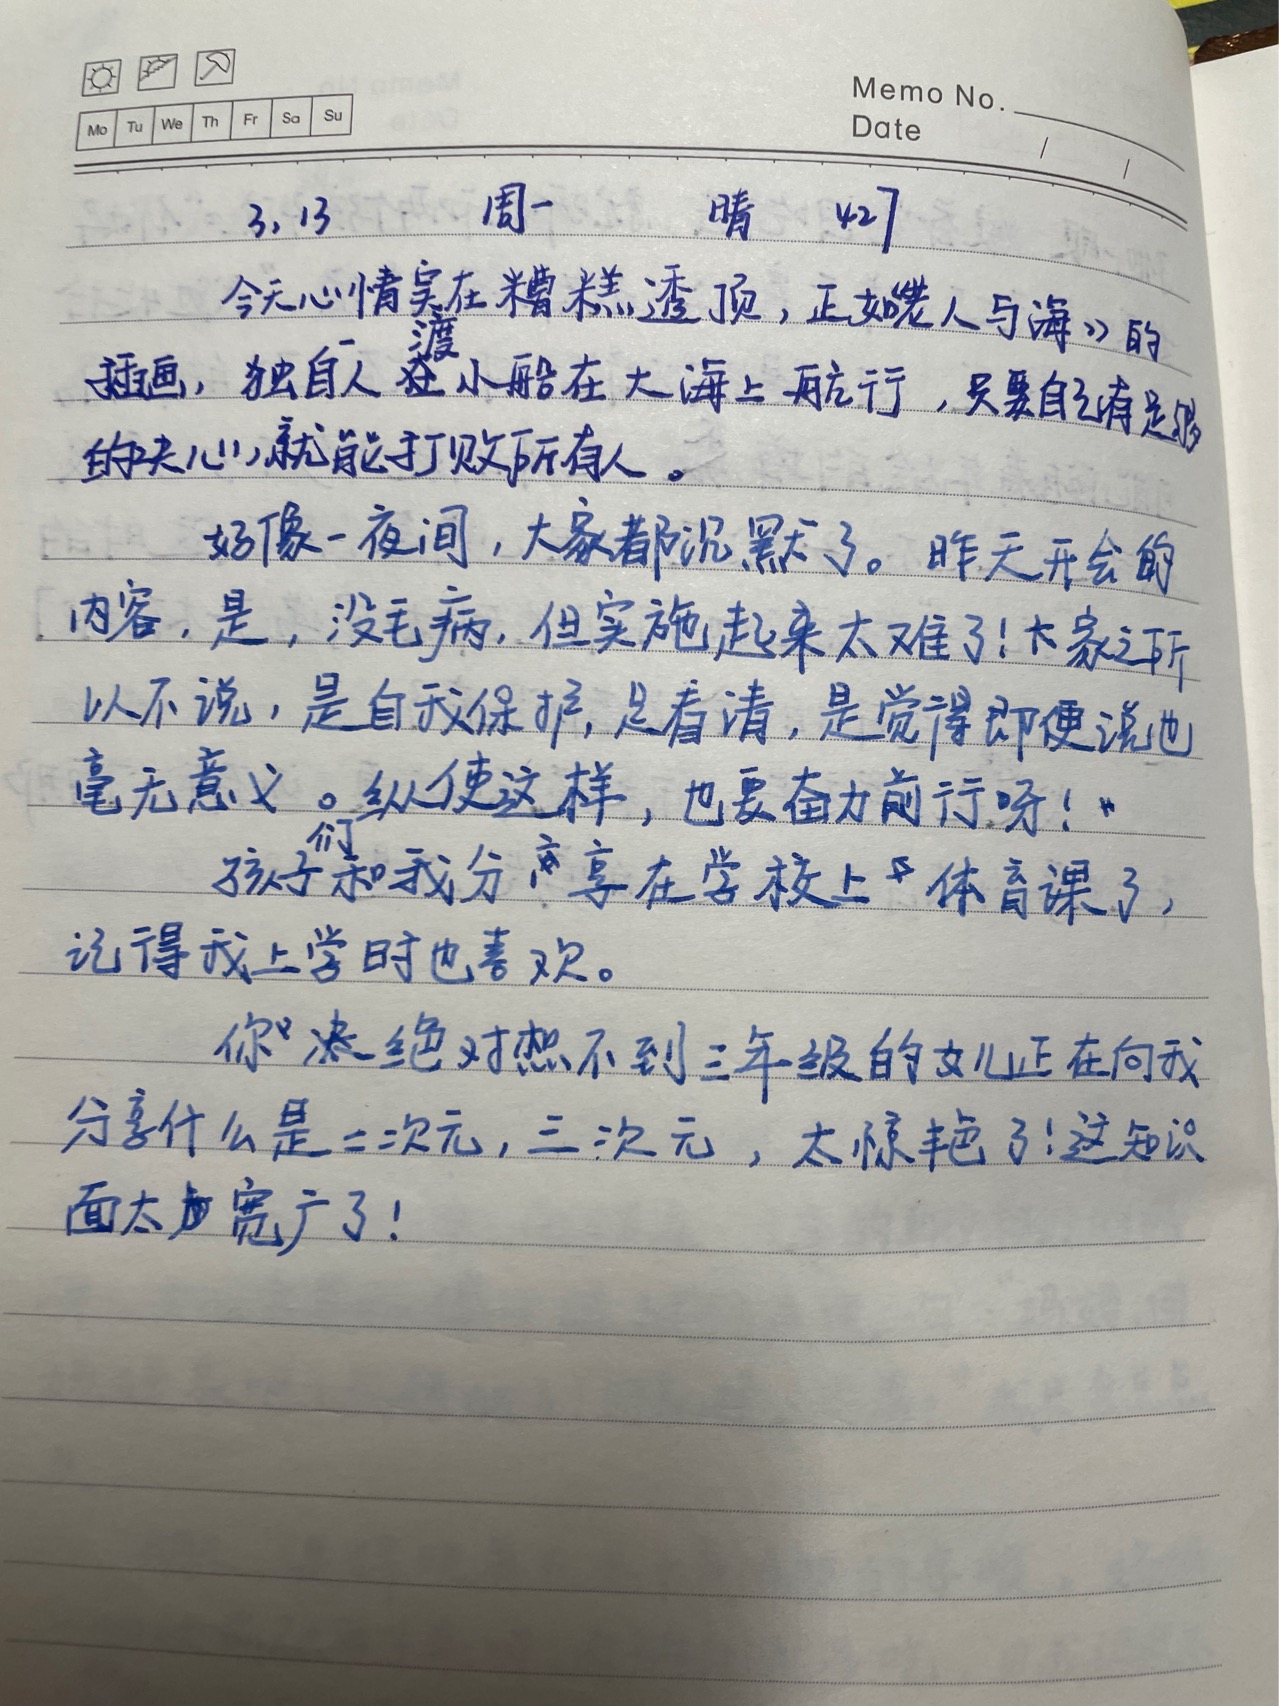 Mo Tu We Th Fr Sa Su
Memo No.
Date / /
3.13 周一 晴 427
今天心情实在糟糕透顶，正如《老人与海》的
插画，独自一人渡小船在大海上航行，只要自己有足够
的决心，就能打败所有人。
好像一夜间，大家都沉默了。昨天开会的
内容，是，没毛病，但实施起来太难了！大家之所
以不说，是自我保护，是看清，是觉得即便说也
毫无意义。纵使这样，也要奋力前行呀！
孩子们和我分享在学校上体育课了，
记得我上学时也喜欢。
你绝对想不到三年级的女儿正在向我
分享什么是二次元，三次元，太惊艳了！这知识
面太宽广了！